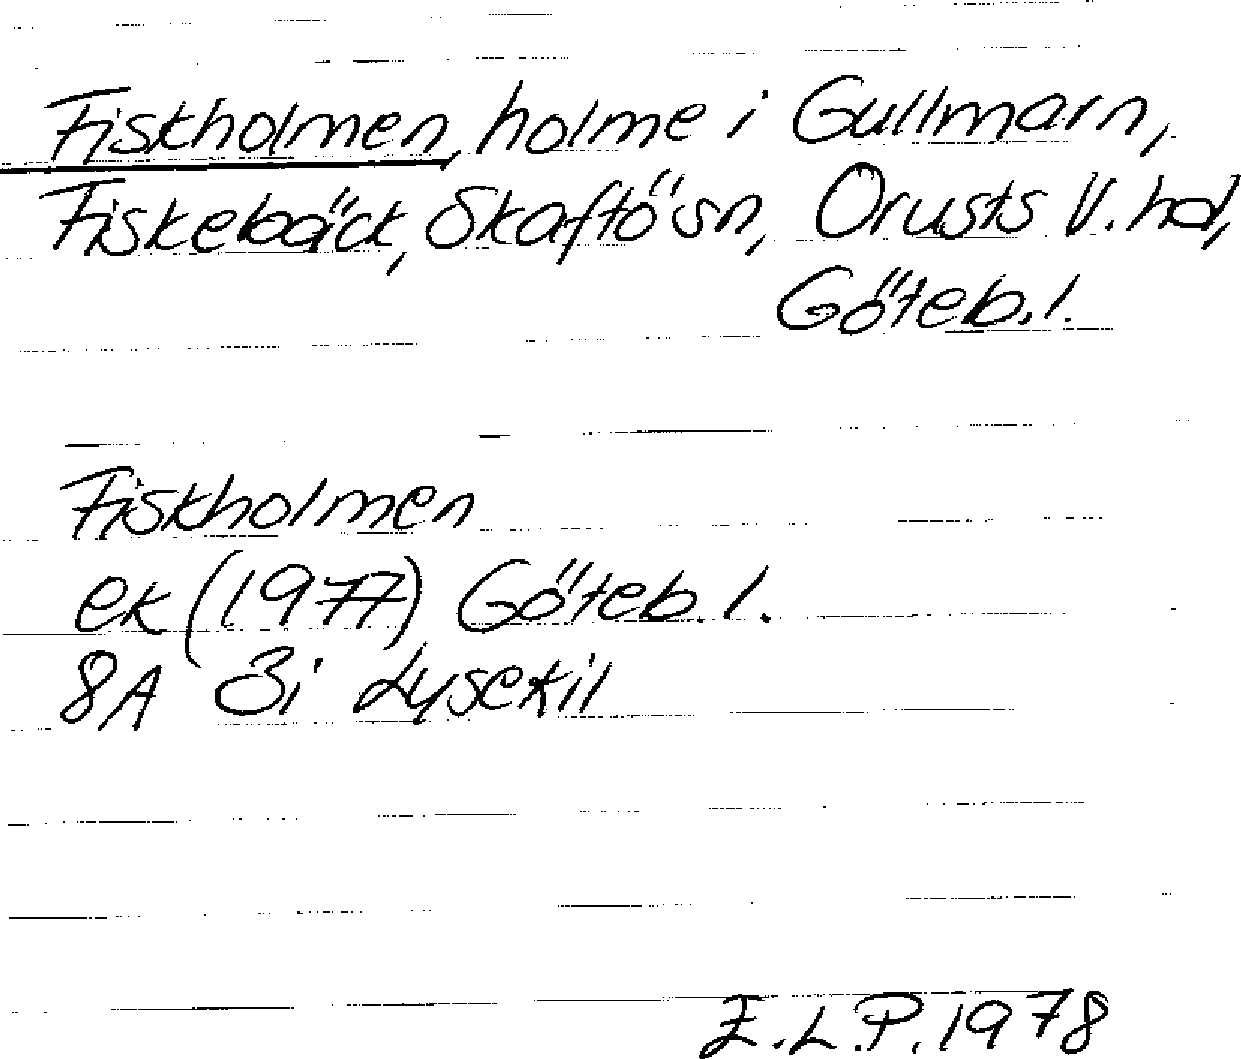 Fiskholmen, holme i Gullmarn,
Fiskebäck, Skaftö sn, Orusts V. hd,
Göteb. l.
Fiskholmen
ek (1977) Göteb. l.
8A 3i Lysekil
E.L.P. 1978